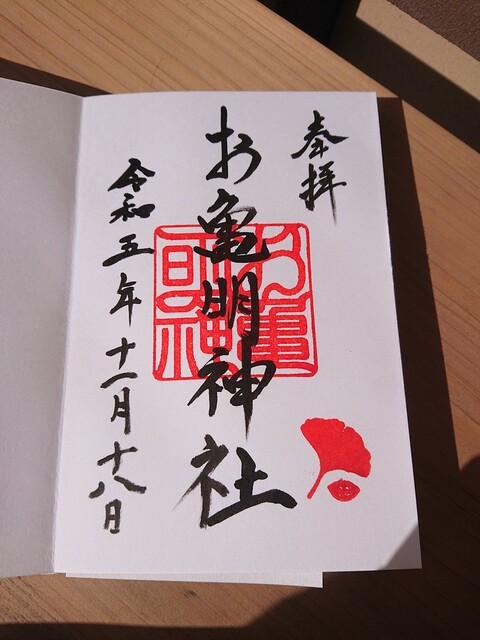 奉拝
お亀明神社
令和五年十一月十八日